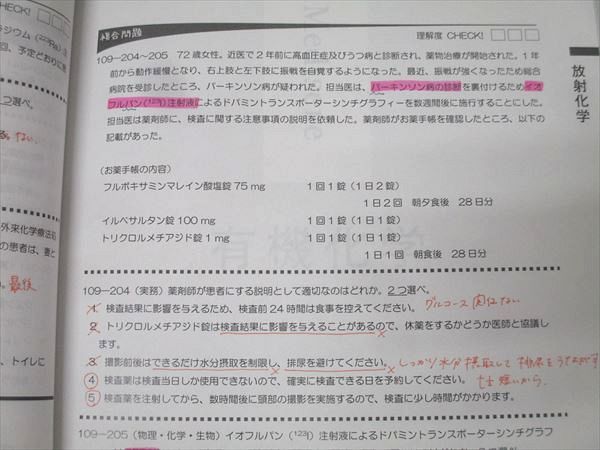 CHECK!
複合問題
理解度 CHECK!
109-204~205 72歳女性。近医で2年前に高血圧症及びうつ病と診断され、薬物治療が開始された。1年
前から動作緩慢となり、右上肢と左下肢に振戦を自覚するようになった。最近、振戦が強くなったため総合
病院を受診したところ、パーキンソン病が疑われた。担当医は、パーキンソン病の診断を裏付けるためイオ
フルパン(¹²³I)注射液によるドパミントランスポーターシンチグラフィーを数週間後に施行することにした。
担当医は薬剤師に、検査に関する注意事項の説明を依頼した。薬剤師がお薬手帳を確認したところ、以下の
記載があった。
放射化学
(お薬手帳の内容)
フルボキサミンマレイン酸塩錠 75 mg 1回1錠(1日2錠)
1日2回 朝夕食後 28日分
イルベサルタン錠 100 mg 1回1錠(1日1錠)
トリクロルメチアジド錠 1 mg 1回1錠(1日1錠)
1日1回 朝食後 28日分
有機化学
109-204(実務)薬剤師が患者にする説明として適切なのはどれか。2つ選べ。
1 検査結果に影響を与えるため、検査前24時間は食事を控えてください。 グルコース関係ない
2 トリクロルメチアジド錠は検査結果に影響を与えることがあるので、休薬をするかどうか医師と協議し
ます。
3 撮影前後はできるだけ水分摂取を制限し、排尿を避けてください。 しっかり水分摂取して排尿をうながす
4 検査薬は検査当日しか使用できないので、確実に検査できる日を予約してください。 t½短いから.
5 検査薬を注射してから、数時間後に頭部の撮影を実施するので、検査に少し時間がかかります。
109-205(物理・化学・生物)イオフルパン(¹²³I)注射液によるドパミントランスポーターシンチグラフ
ラジウム(²²³Ra)
回、予定どおりに
2つ選べ。
ない.
外来化学療法の
の患者は、妻と
最後
、トイレに